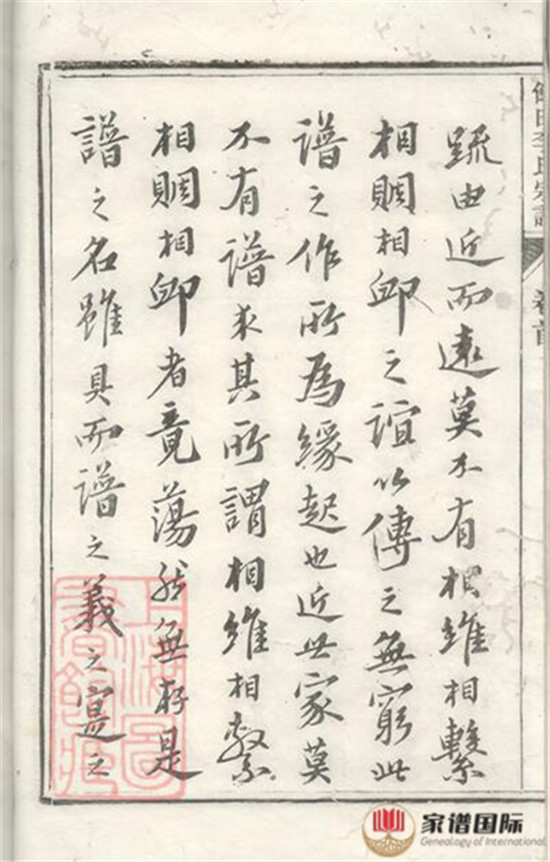 李氏宗譜
卷首
疏由近而遠莫不有相維相繫
相賙相卹之誼以傳之無窮此
譜之作所為緣起也近世家莫
不有譜求其所謂相維相繫
相賙相卹者竟蕩然無存是
譜之名雖具而譜之義之寔之
上海圖
書館藏
家谱国际
Genealogy of International